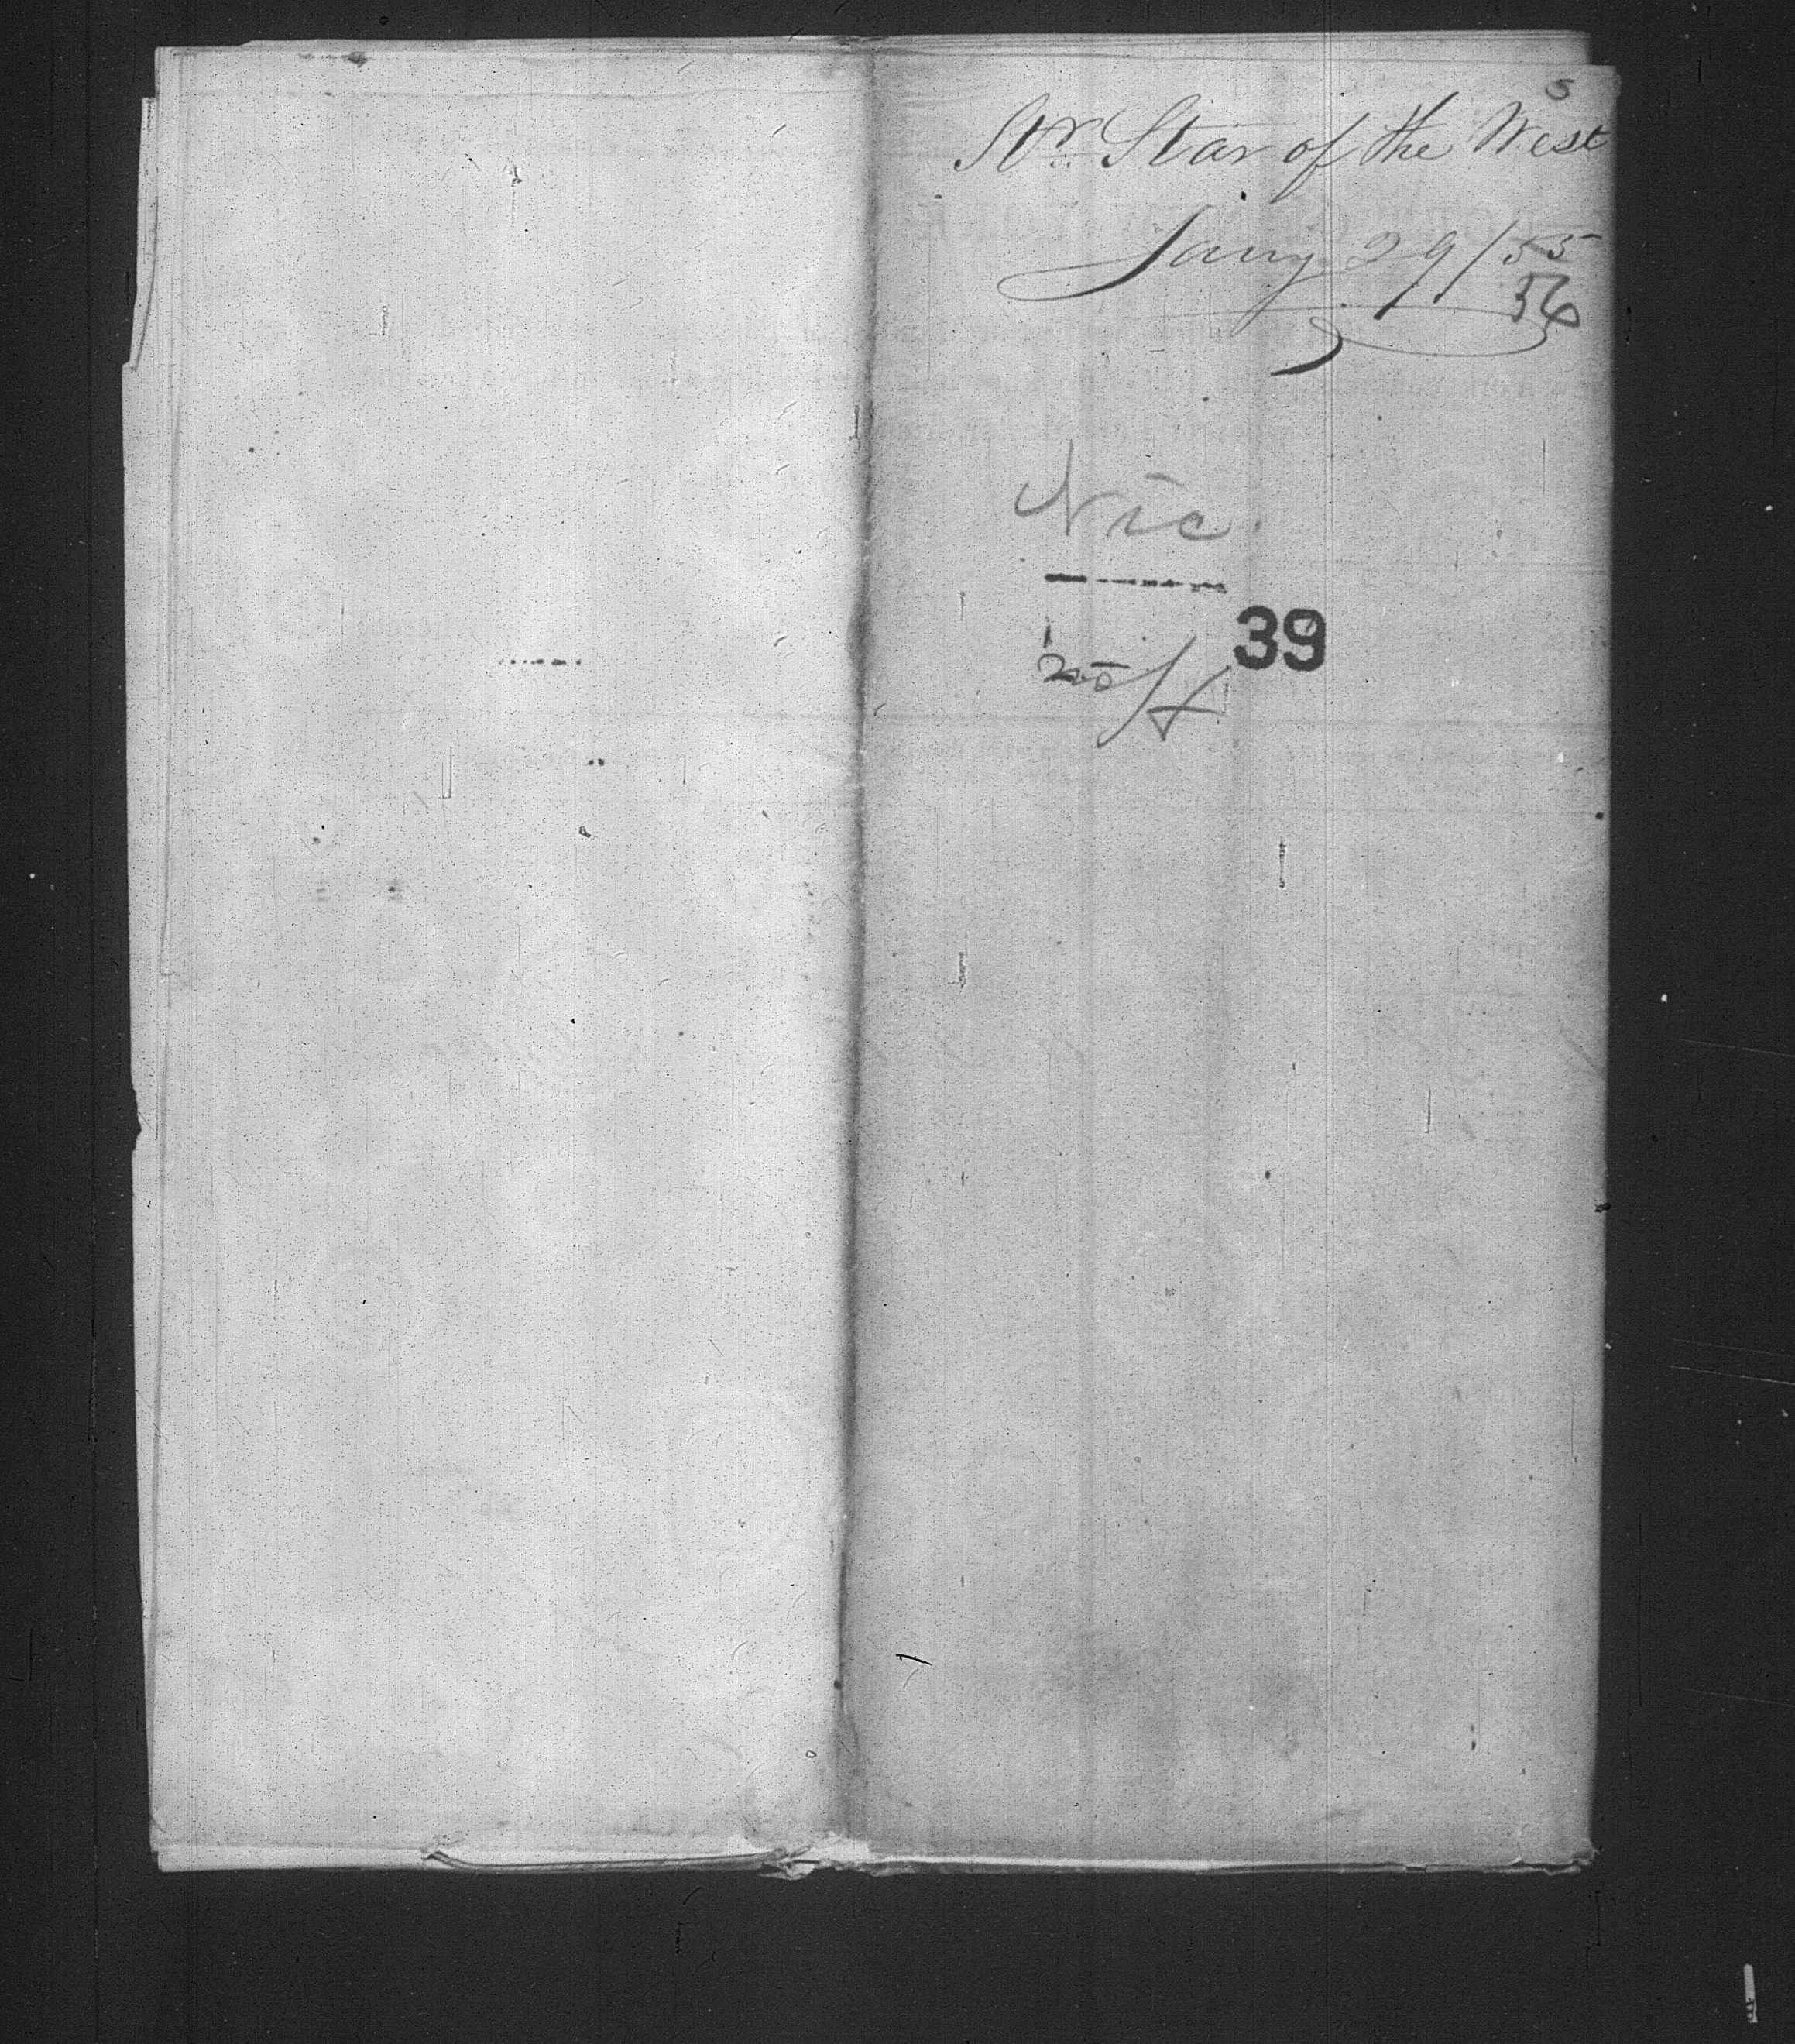 5
Str. Star of the West
Jany 29/55
56
Nic.
39